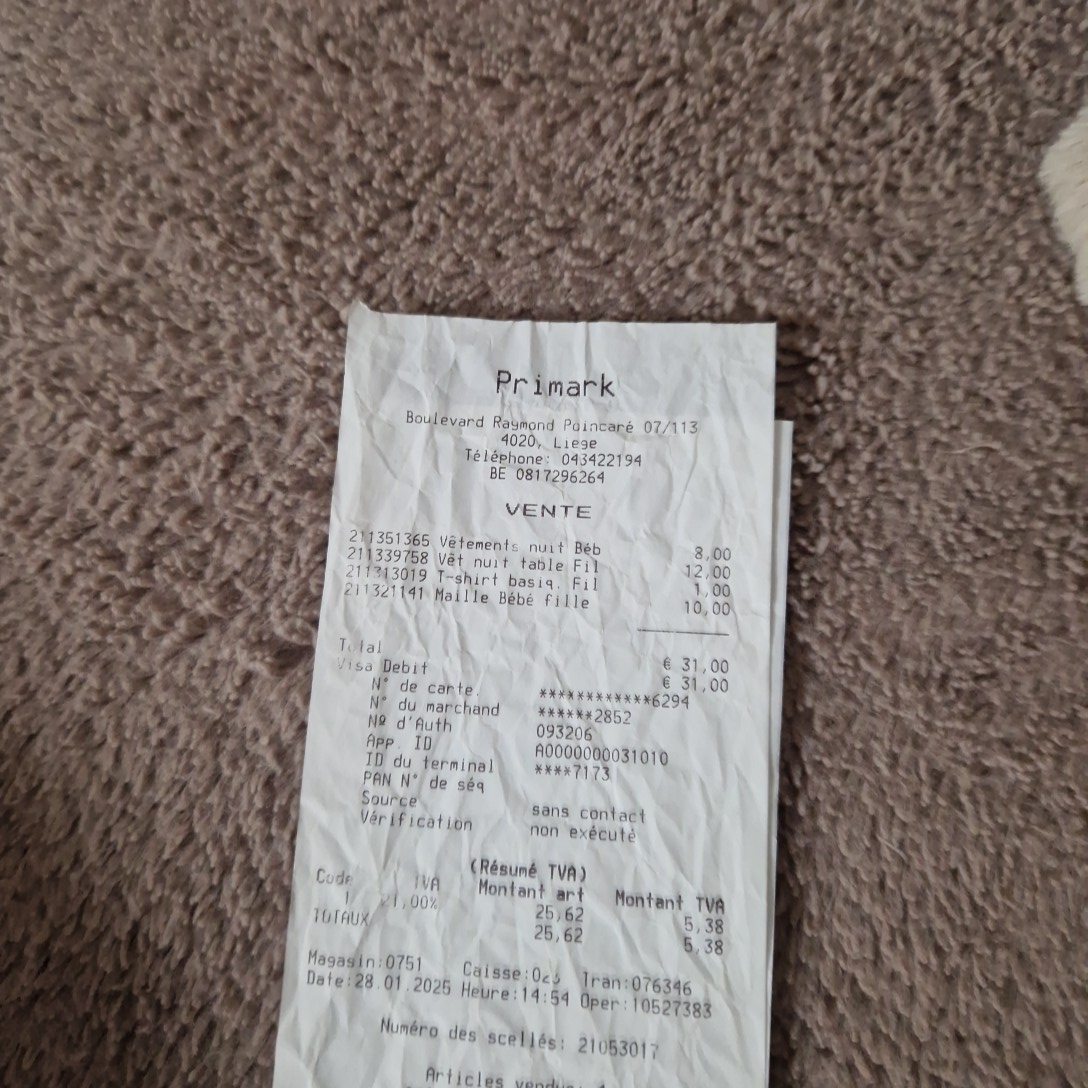 Primark
Boulevard Raymond Poincaré 07/113
4020, Liege
Téléphone: 043422194
BE 0817296264
VENTE
211351365 Vêtements nuit Béb 8,00
211339758 Vêt nuit table Fil 12,00
211313019 T-shirt basiq. Fil 1,00
211321141 Maille Bébé fille 10,00
Total € 31,00
Visa Debit € 31,00
N° de carte. ************6294
N° du marchand ******2852
Nº d'Auth 093206
App. ID A0000000031010
ID du terminal ****7173
PAN N° de séq
Source sans contact
Vérification non exécuté
(Résumé TVA)
Code TVA Montant art Montant TVA
1 21,00% 25,62 5,38
TOTAUX 25,62 5,38
Magasin:0751 Caisse: Tran:076346
Date:28.01.2025 Heure:14:54 Oper:10527383
Numéro des scellés: 21053017
Articles